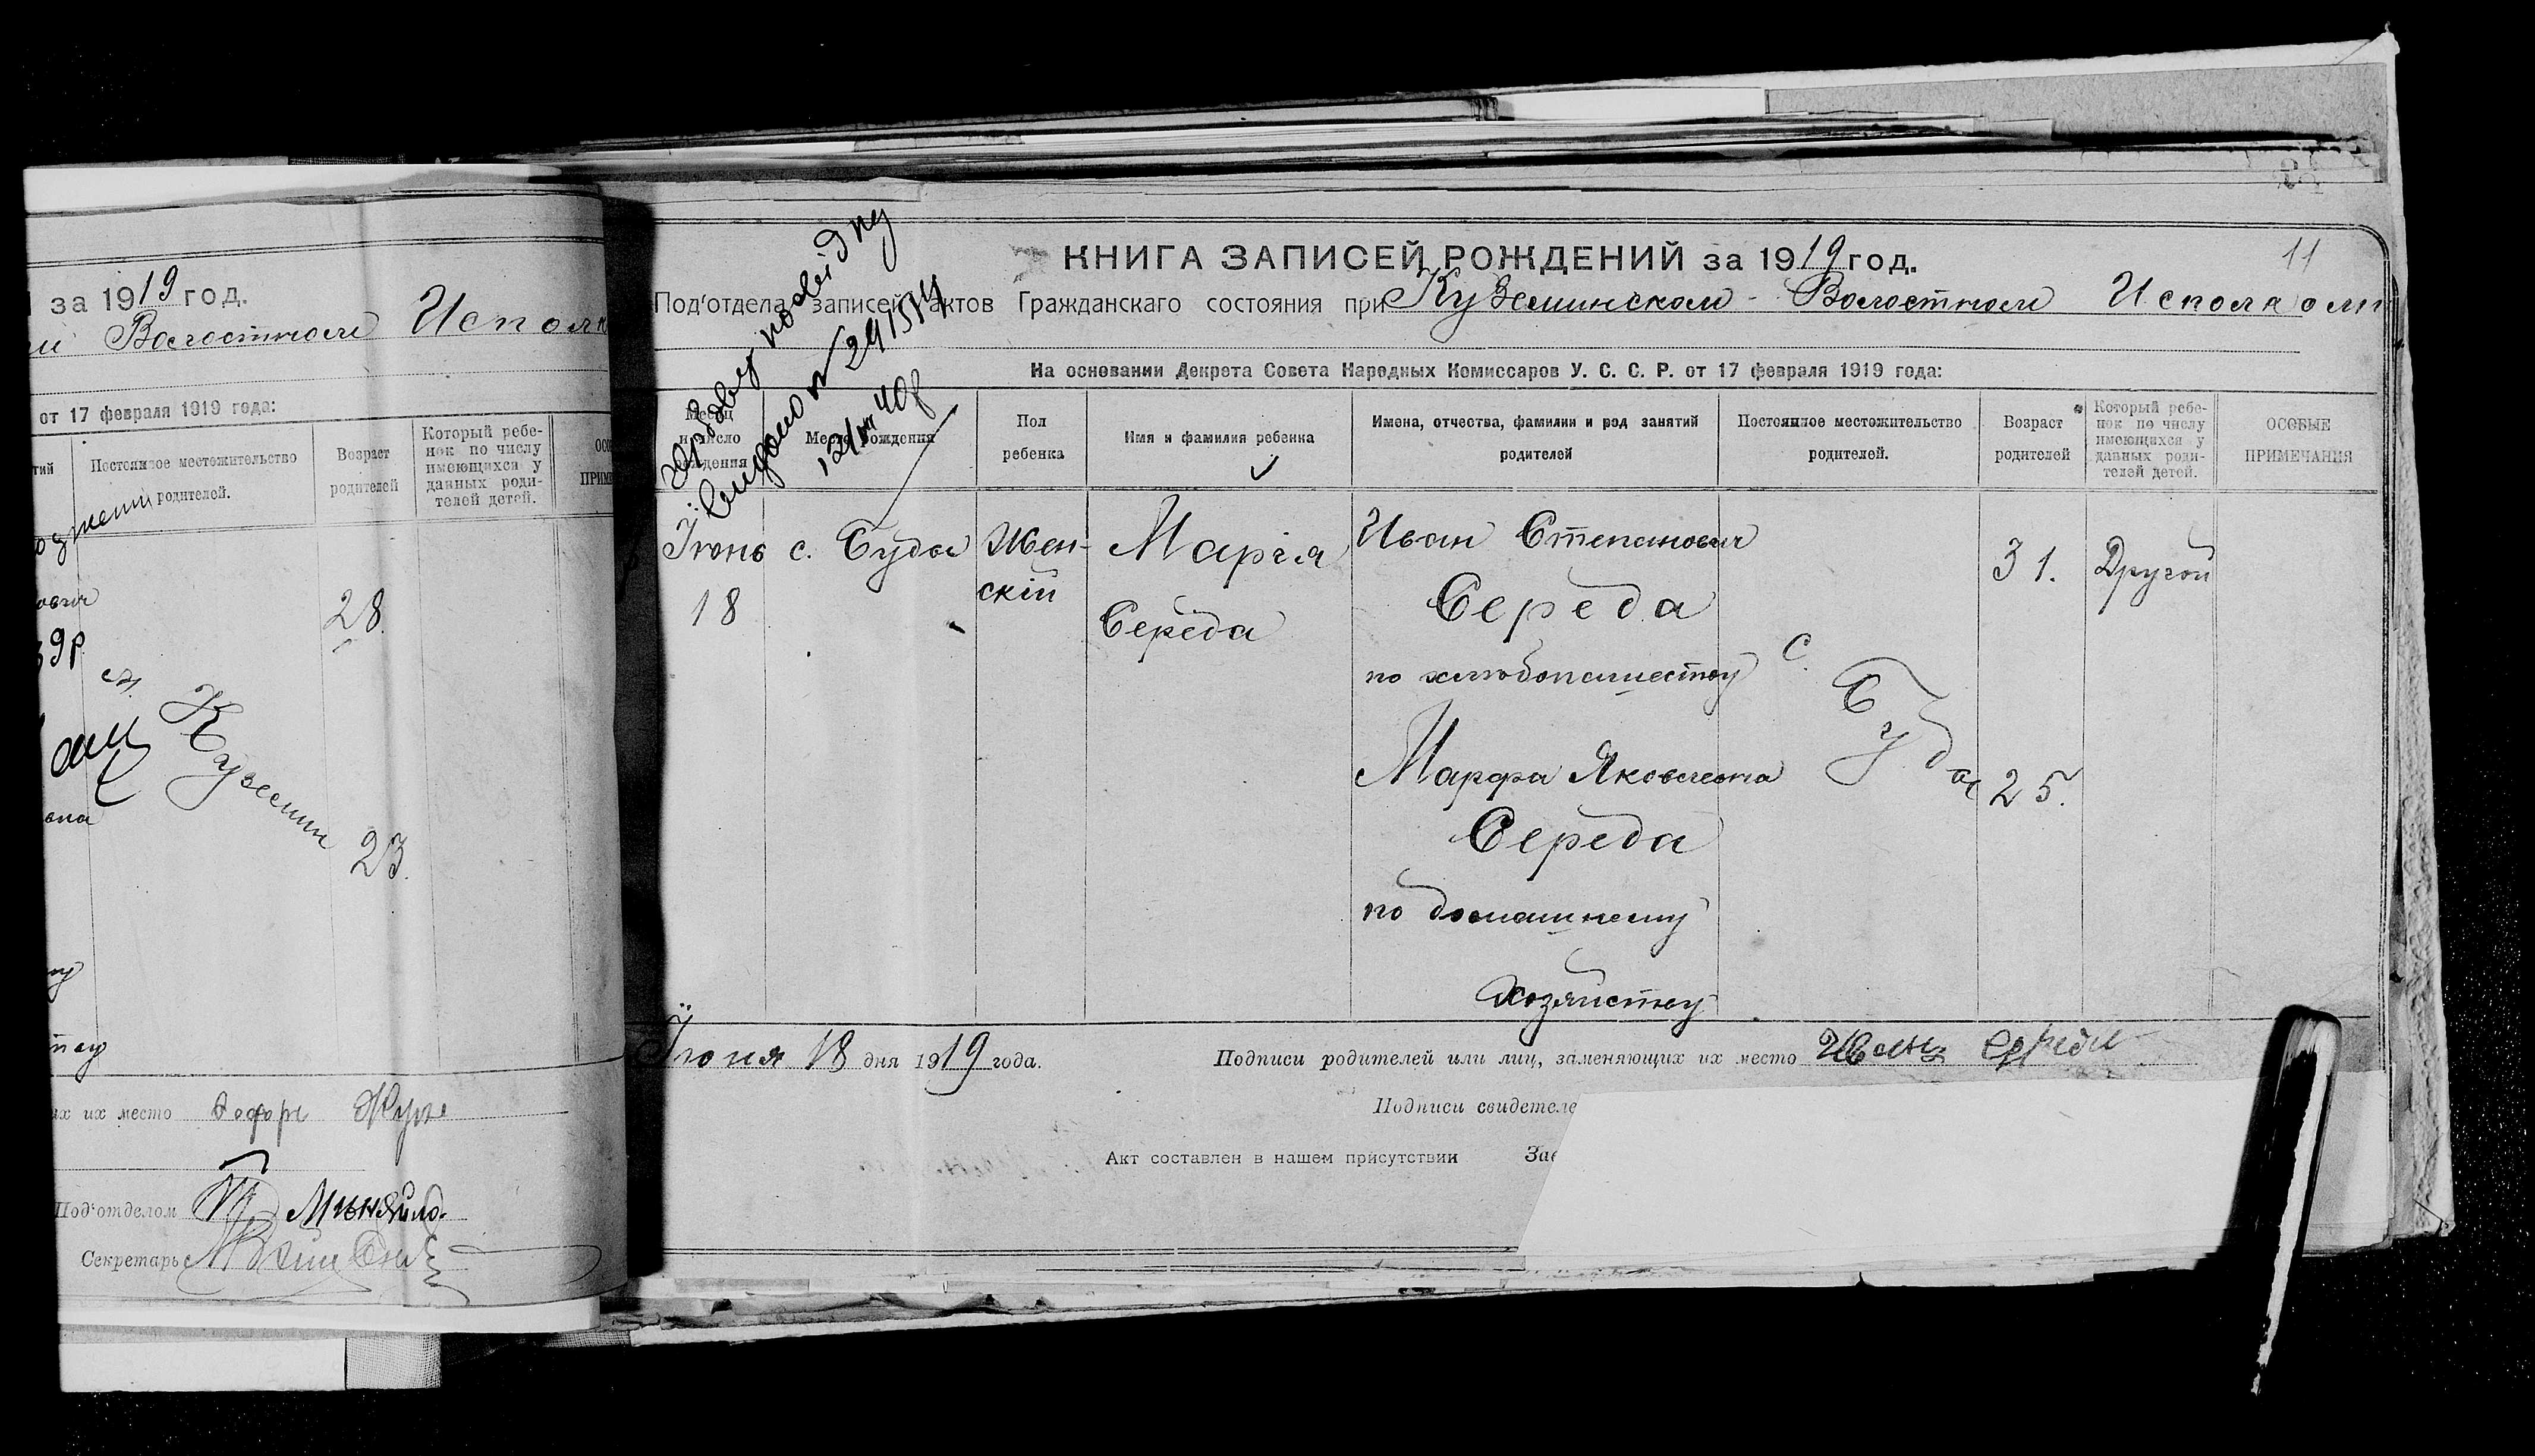 за 1919 год.
Волостном Исполк
от 17 февраля 1919 года:
Постоянное местожительство
родителей.
Возраст
родителей
Который ребе-
нок по числу
имеющихся у
данных роди-
телей детей.
28.
с. Куземин
23.
их место Жук
Под'отделом
Секретарь
11
КНИГА ЗАПИСЕЙ РОЖДЕНИЙ за 1919 год.
Под'отдела записей актов Гражданскаго состояния при Куземинском - Волостном Исполкоми
На основании Декрета Совета Народных Комиссаров У. С. С. Р. от 17 февраля 1919 года:
№ 291574
12/VII 40р
Месяц
и число
рождения
Место рождения
Пол
ребенка
Имя и фамилия ребенка
Имена, отчества, фамилии и род занятий
родителей
Постоянное местожительство
родителей.
Возраст
родителей
Который ребе-
нок по числу
имеющихся у
данных роди-
телей детей.
ОСОБЫЕ
ПРИМЕЧАНИЯ
Їюнь
18
с. Буда
Жен-
скій
Марія
Середа
Иван Степанович
Середа
по хлебопашеству
Марфа Яковлевна
Середа
по домашнему
хозяйству
с. Буда
31.
25.
Другой
Їюня 18 дня 1919 года.
Подписи родителей или лиц, заменяющих их место Иванъ Середа
Подписи свидетеле
Акт составлен в нашем присутствии Зав